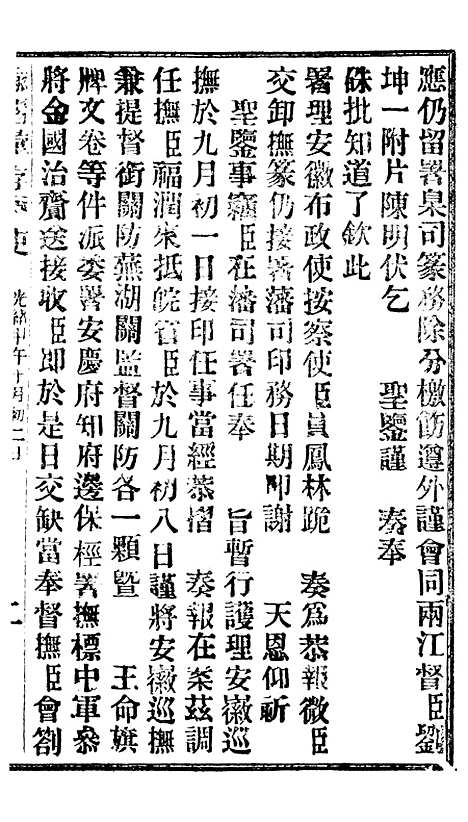 應仍留署臬司篆務除分檄飭遵外謹會同兩江督臣劉
坤一附片陳明伏乞 聖鑒謹 奏奉
硃批知道了欽此
署理安徽布政使按察使臣員鳳林跪 奏爲恭報微臣
交卸撫篆仍接署藩司印務日期叩謝 天恩仰祈
聖鑒事竊臣在藩司署任奉 旨暫行護理安徽巡
撫於九月初一日接印任事當經恭摺 奏報在案茲調
任撫臣福潤業抵皖省臣於九月初八日謹將安徽巡撫
兼提督銜關防蕪湖關監督關防各一顆暨 王命旗
牌文卷等件派委署安慶府知府邊保桱署撫標中軍叅
將金國治齎送接收臣即於是日交缺當奉督撫臣會劄
光緒甲午十月初二日 二